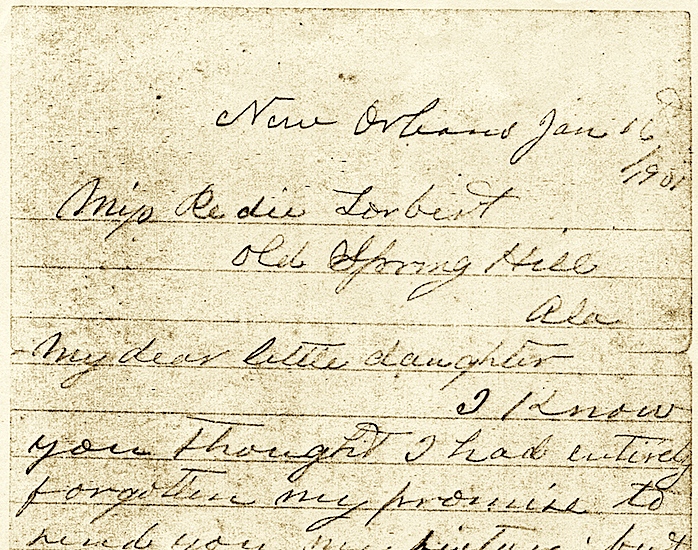 New Orleans Jan 16
1901
Miss Redie Torbert
Old Spring Hill
Ala
My dear little daughter
I Know
you thought I had entirely
forgotten my promise to
send you my picture but